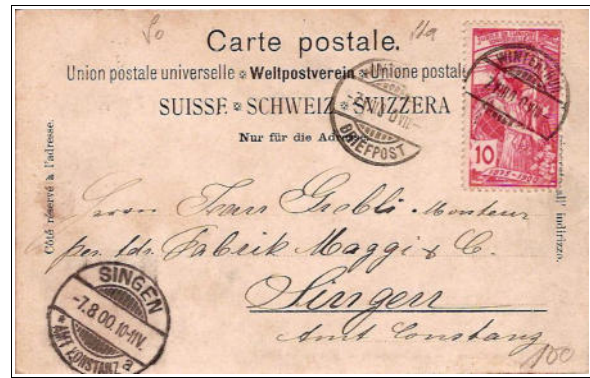 Carte postale.
Union postale universelle * Weltpostverein * Unione postale
SUISSE * SCHWEIZ * SVIZZERA
Nur für die Adresse
Côté réservé à l'adresse.
all' indirizzo.
WINTERTHUR
BRIEFPOST
10
1875-1900
Herrn Franz Grobli Monteur
per Adr. Fabrik Maggi & C.
Singen
Amt Constanz
SINGEN
-7.8.00.10-11V.
* AMT KONSTANZ a
100